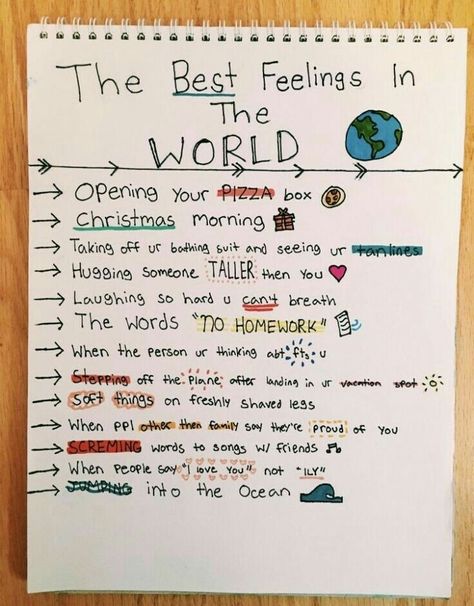 The Best Feelings In
The
WORLD
→ Opening Your PIZZA box
→ Christmas morning
→ Taking off ur bathing suit and seeing ur tanlines
→ Hugging someone TALLER then you
→ Laughing so hard u can't breath
→ The words "NO HOMEWORK"
→ When the person ur thinking abt fts u
→ Stepping off the plane after landing in ur vacation spot
→ Soft things on freshly shaved legs
→ When PPl other then family say they're proud of you
→ SCREMING words to songs w/ friends
→ When People say "I love You" not "ILY"
→ JUMPING into the Ocean